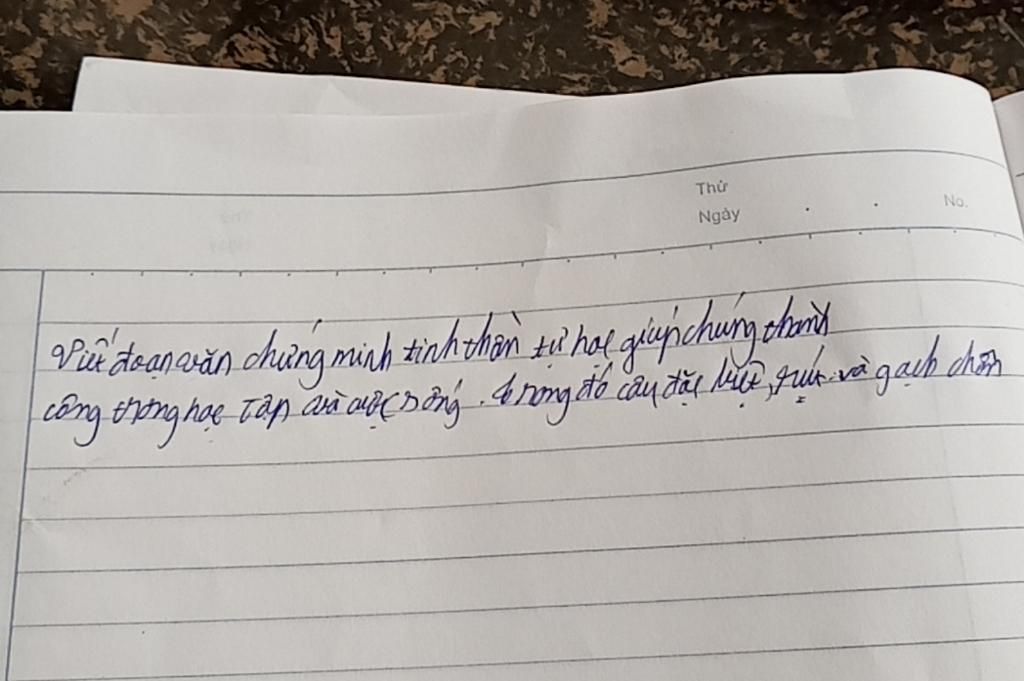 Thứ
Ngày
No.
Viết đoạn văn chứng minh tinh thần tự học giúp chúng thành
công trong học tập và cuộc sống. trong đó câu đặc biệt, rút và gạch chân